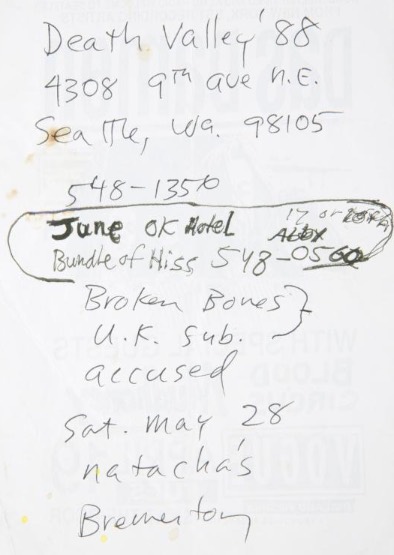 Death Valley '88
4308 9th ave N.E.
Seattle, wa. 98105
548-1350
June OK Hotel
17 or
Alex
Bundle of Hiss 548-0560
Broken Bones }
U.K. Sub.
accused
Sat. may 28
natacha's
Bremerton
WITH SPECIAL GUESTS
BLOOD
CIRCUS
VOGUE